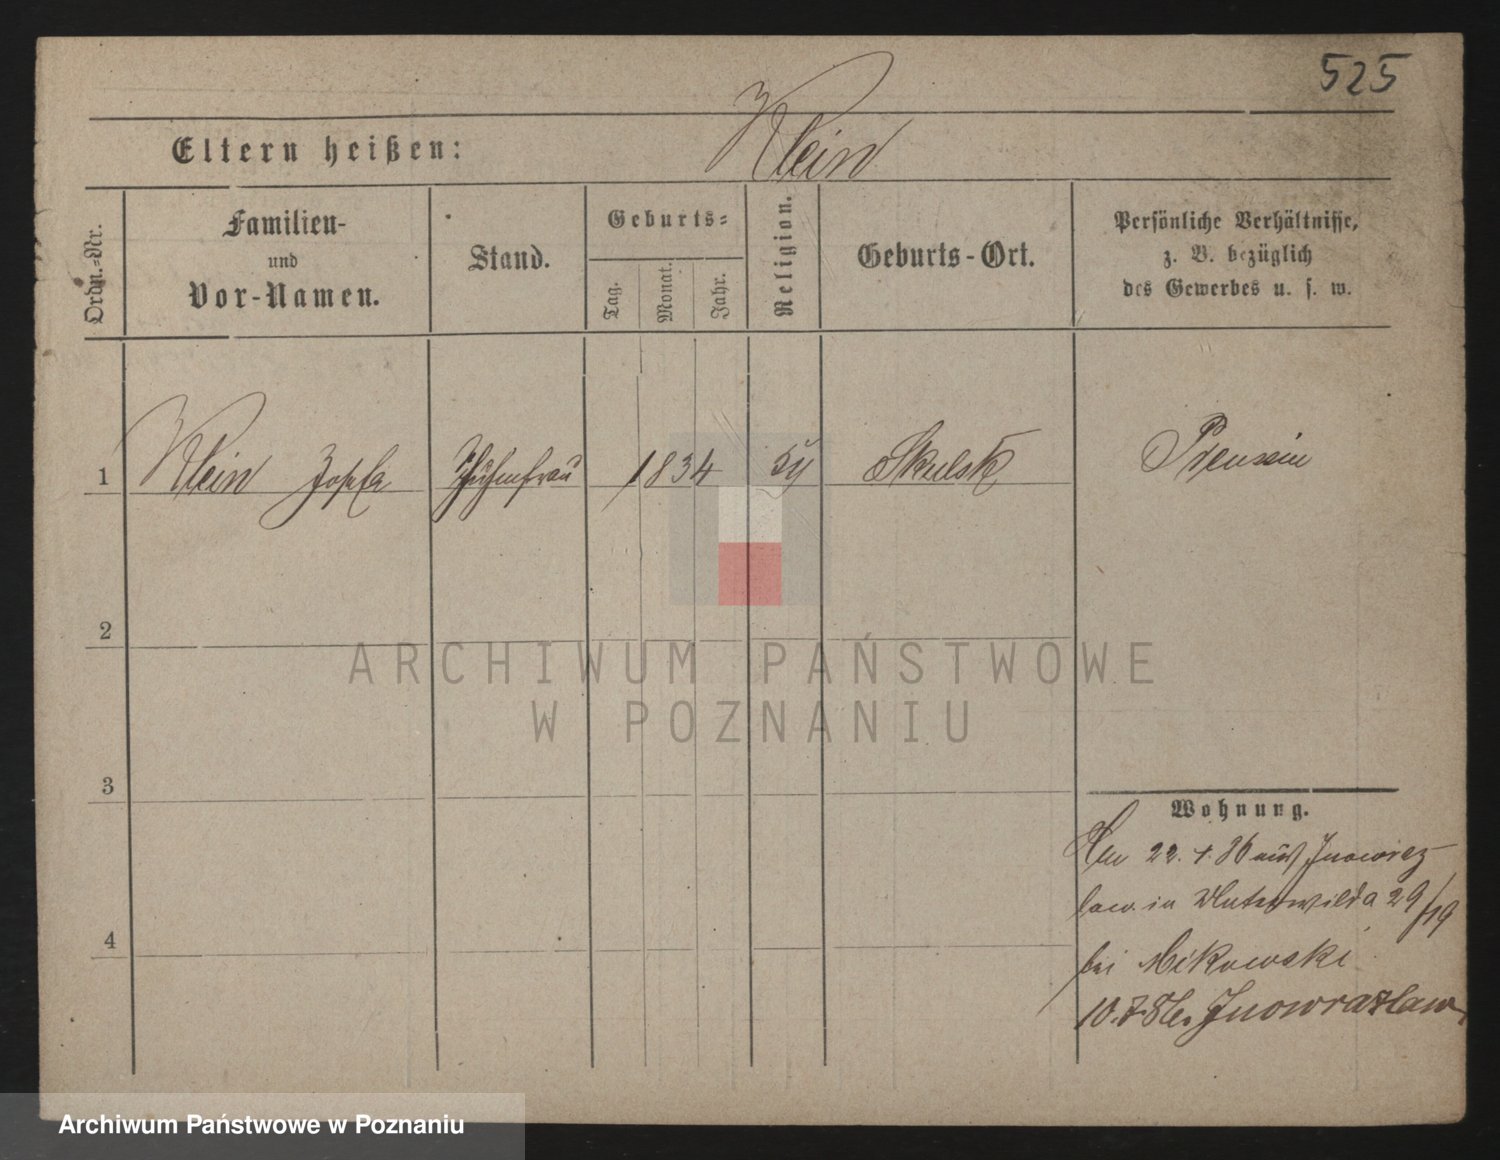 525
Eltern heißen: Klein
Ordn.-Nr.
Familien-
und
Vor-Namen.
Stand.
Geburts-
Tag.
Monat.
Jahr.
Religion.
Geburts-Ort.
Persönliche Verhältnisse,
z. B. bezüglich
des Gewerbes u. s. w.
1 Klein Josefa 1834 Skulsk
2
3
4
Wohnung.
22. 86 aus Inowraz
law in Unterwilda 29/19
bei Mikowski
10. 86. Inowrazlaw
ARCHIWUM PAŃSTWOWE
W POZNANIU
Archiwum Państwowe w Poznaniu